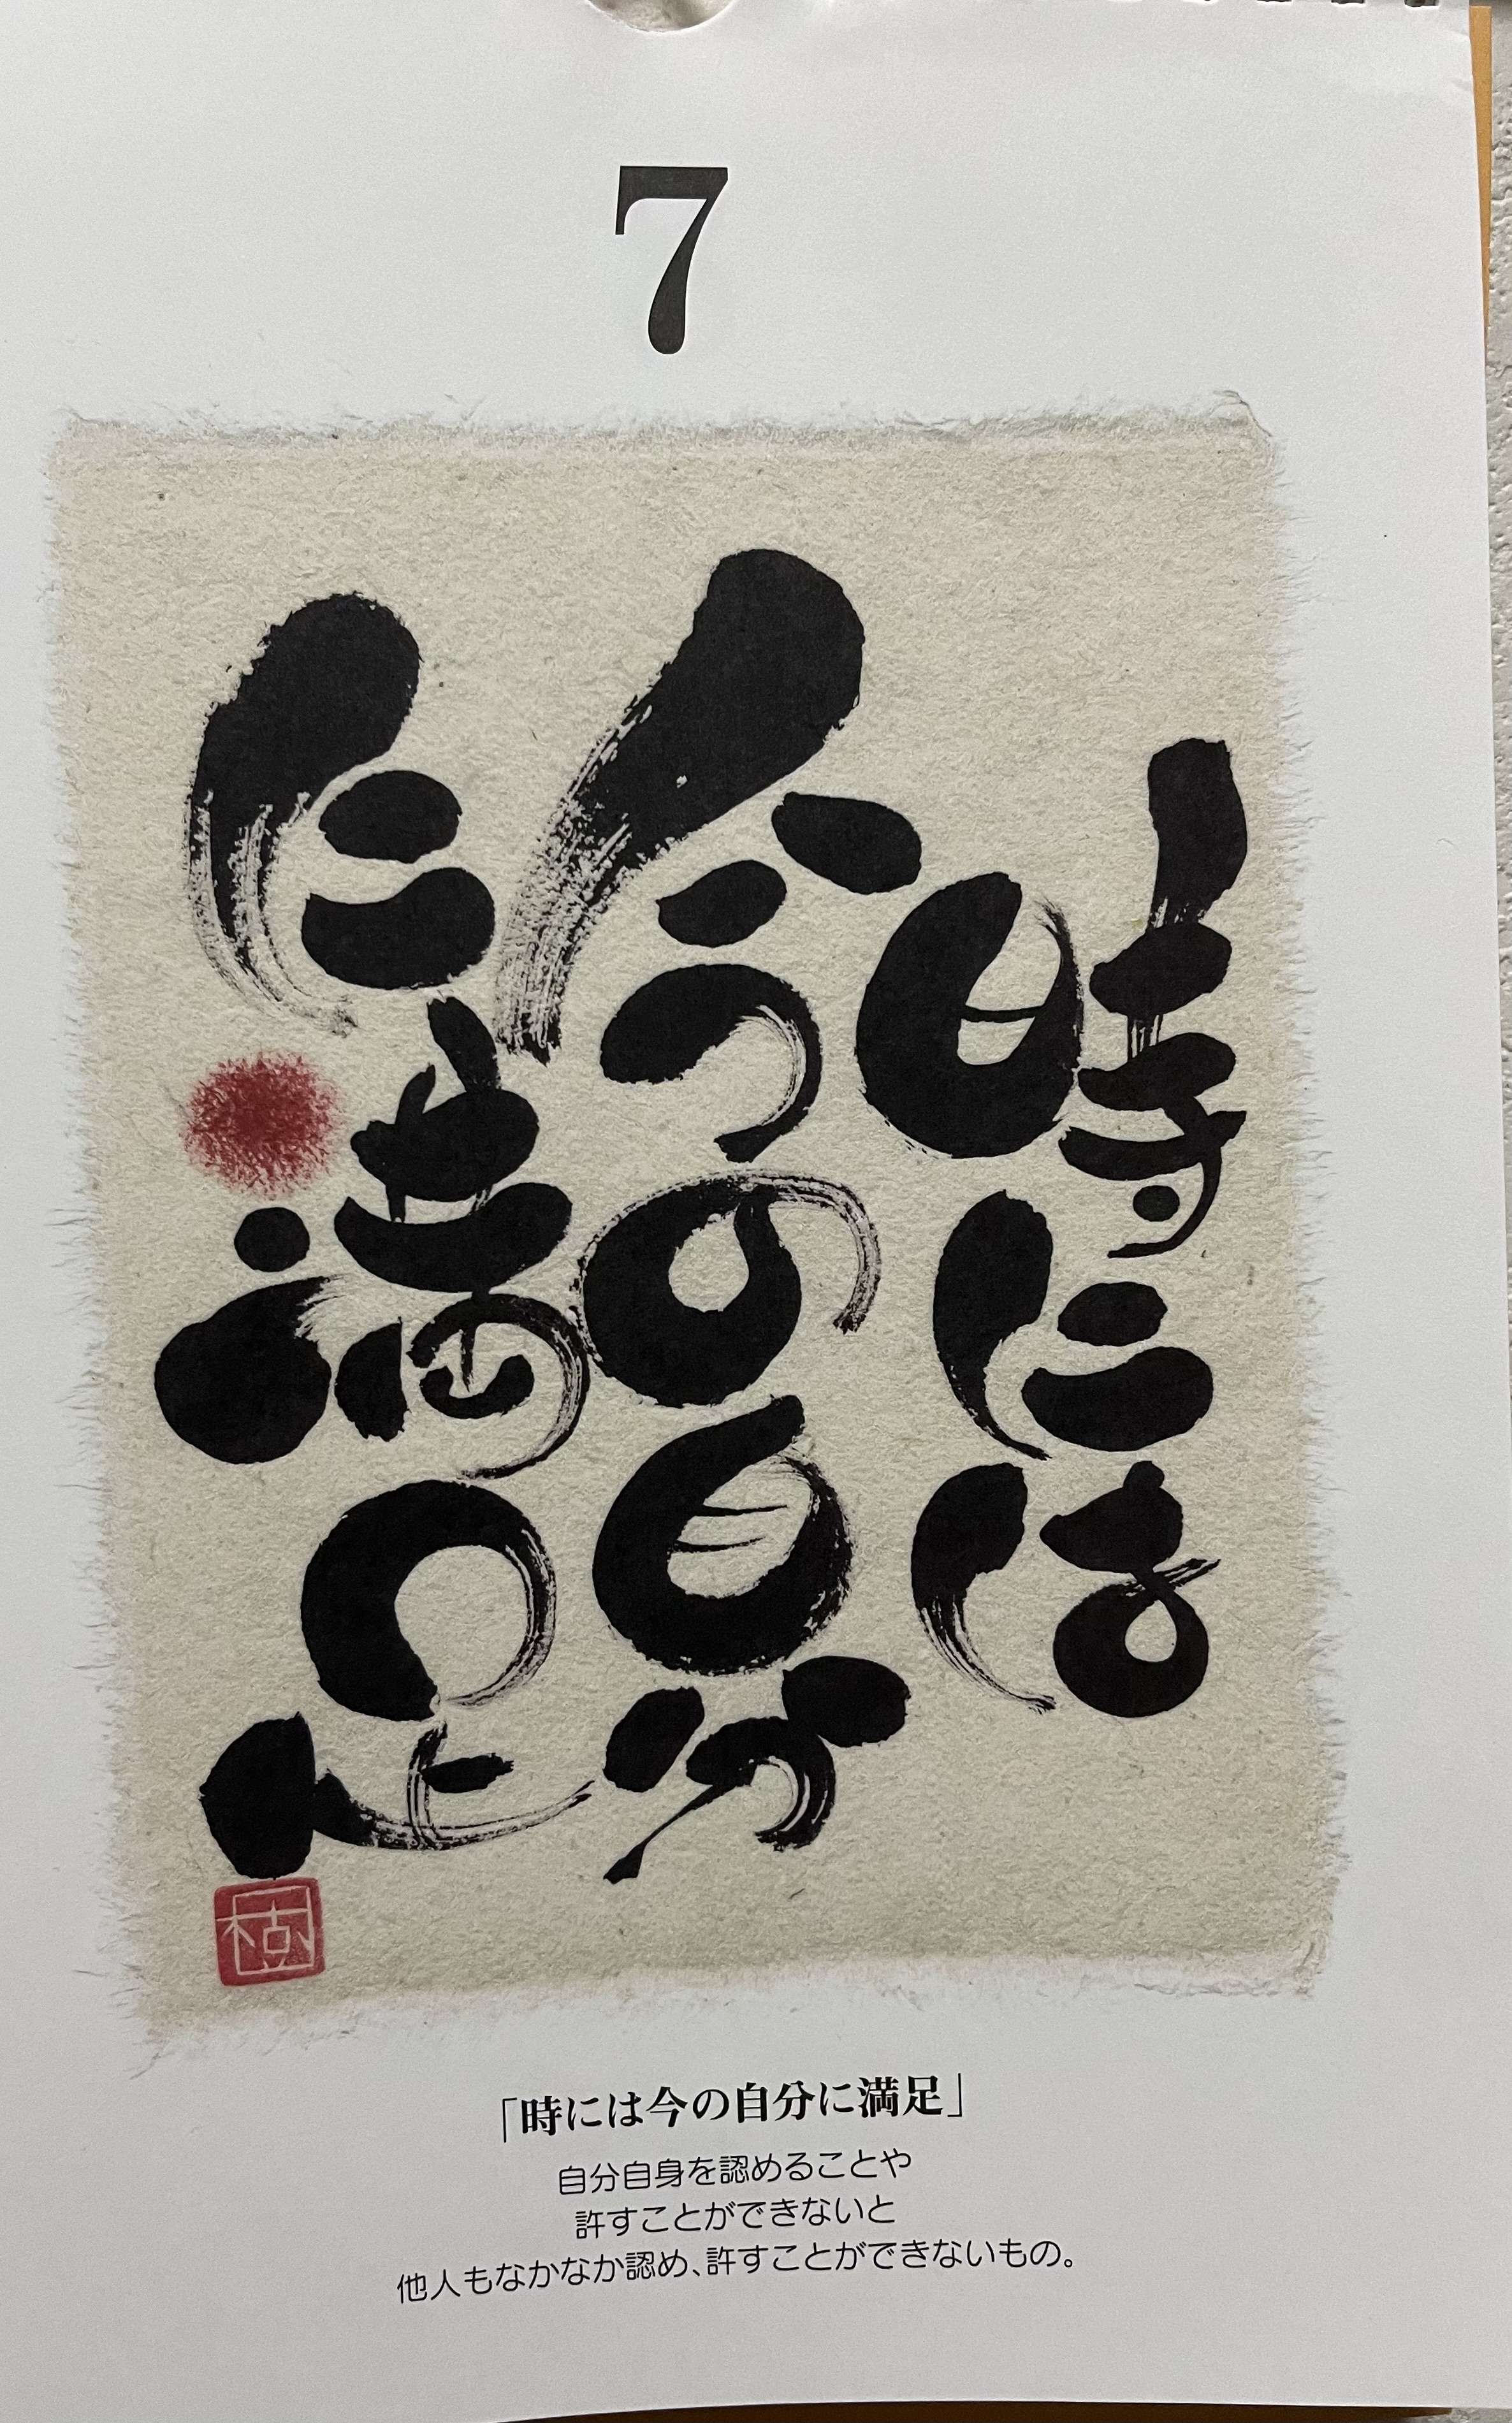 7
時には
今の自分
に満足
樹
「時には今の自分に満足」
自分自身を認めることや
許すことができないと
他人もなかなか認め、許すことができないもの。